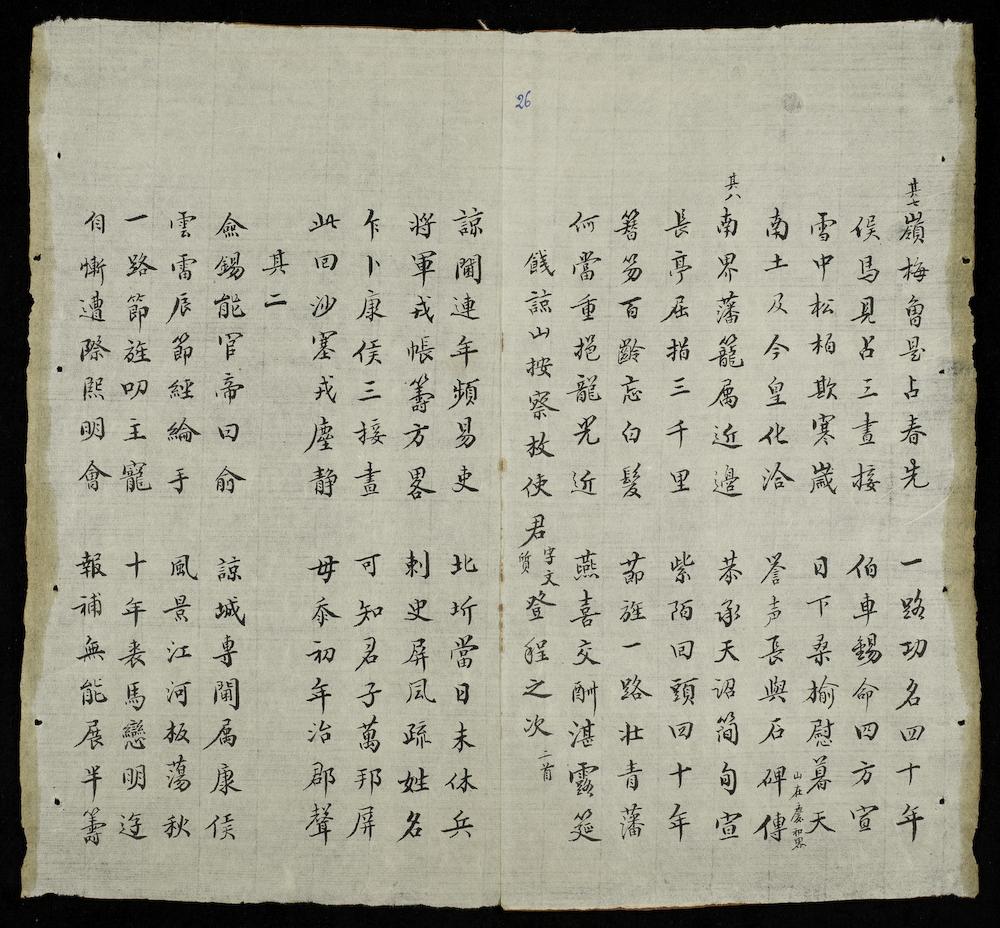 26
其七 嶺梅曾是占春先 一路功名四十年
侯馬見占三晝接 伯車錫命四方宣
雪中松柏欺寒歲 日下桑榆慰暮天
南土及今皇化洽 譽声長與石碑傳 山在慶和界
其八 南界藩籠属近邊 恭承天詔簡旬宣
長亭屈指三千里 紫陌回頭四十年
簪笏百齡忘白髮 節旌一路壮青藩
何當重挹龍光近 燕喜交酬湛露筵
餞諒山按察枚使君 字文質 登程之次 二首
諒閫連年頻易吏 北圻當日未休兵
將軍戎帳籌方畧 刺史屏風疏姓名
乍卜康侯三接晝 可知君子萬邦屏
此回沙塞戎塵静 毋忝初年治郡聲
其二
僉錫能官帝曰俞 諒城專閫属康侯
雲雷辰節經綸手 風景江河板蕩秋
一路節旌叨主寵 十年裘馬戀明廷
自慚遭際熙明會 報補無能展半籌